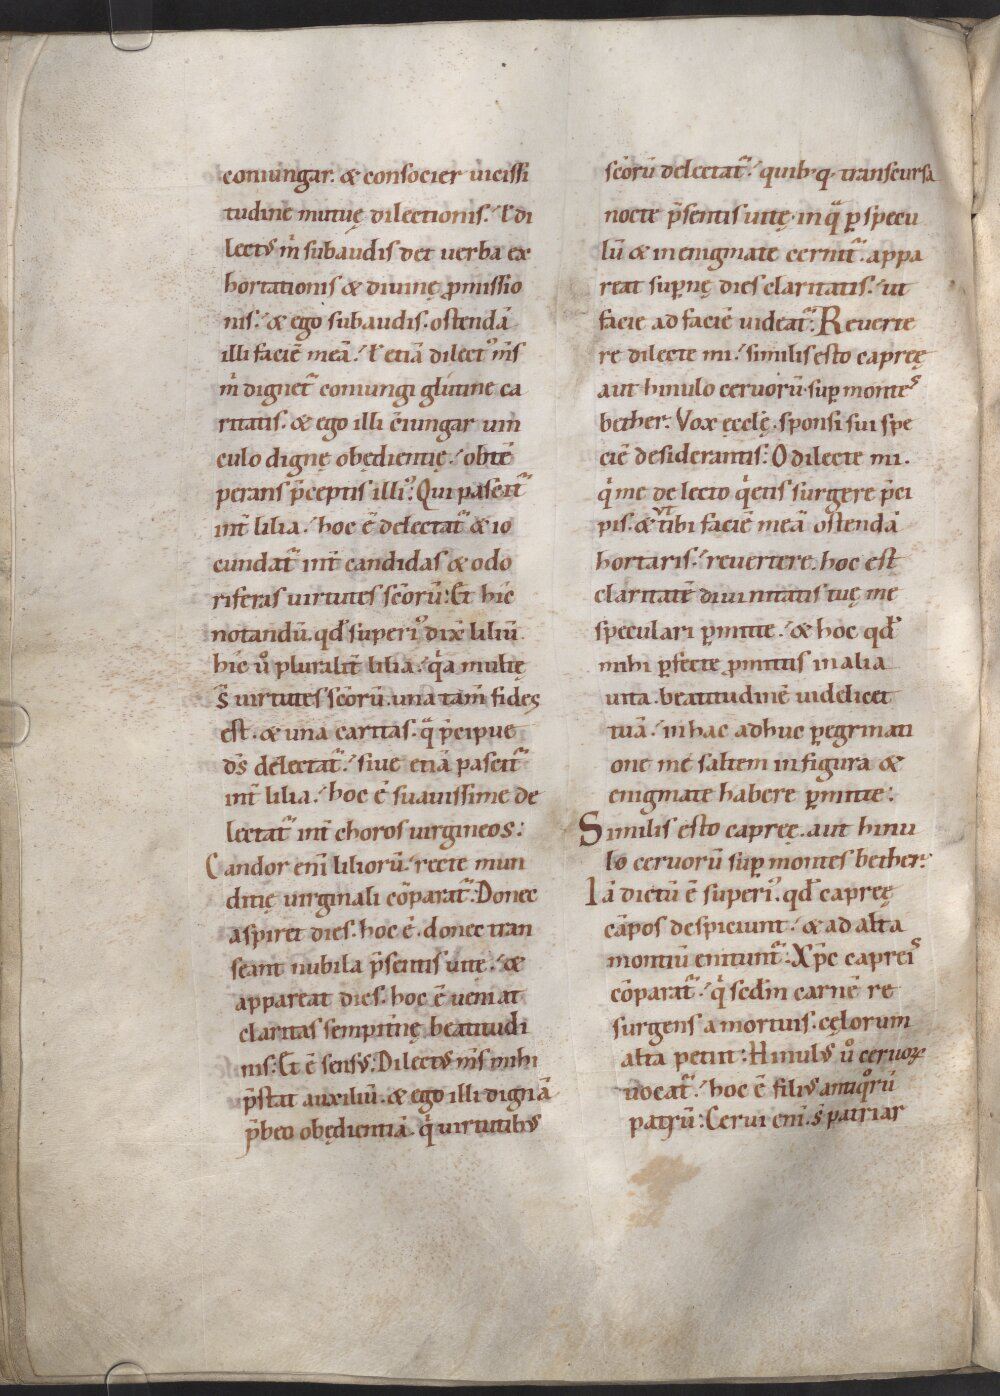 coniungar. & consocier uicissi
tudine mutuę dilectionis. ł di
lectus m̄ subaudis det uerba ex
hortationis & diuinę ꝓmissio
nis. & ego subaudis. ostendā
illi faciē meā. ł etiā dilectꝰ m̄s
m̄ dignet᷑ coniungi glutine ca
ritatis. & ego illi c̄iungar uin
culo dignę obedientię. obtē
perans p̄ceptis illiꝰ. Qui pascit᷑
int̄ lilia. hoc ē delectat᷑ & io
cundat᷑ int̄ candidas & odo
riferas uirtutes sc̄orū. Et hic
notandū. qđ superiꝰ dix̄ liliū
hic ů pluralit̄ lilia. q̇a multę
s̄ uirtutes sc̄orū. una tam̄ fides
est. & una caritas. q̄ p̄cipue
d̄s delectat᷑. siue etiā pascit᷑
int̄ lilia. hoc ē suauissime de
lectat᷑ int̄ choros uirgineos:
Candor eni̅ liliorū. recte mun
ditię uirginali cōparat᷑. Donec
aspiret dies. hoc ē. donec tran
seant nubila p̄sentis uitę. &
appareat dies. hoc ē ueniat
claritas sempit̄nę beatitudi
nis. Et ē sensus. Dilectus m̄s mihi
p̄stat auxiliū. & ego illi dignā
p̄beo obędientiā. q̇ uirtutibus
sc̄orū delectat᷑. quib·q· transcursa
nocte p̄sentis uitę. in q̄ ꝑ specu
lū & in enigmate cernit᷑. appa
reat suꝑnę dies claritatis. ut
facie ad faciē uideat᷑. Reuerte
re dilecte mi. similis esto capreę
aut hinulo ceruorū. suꝑ montes
bether. Vox ęcclę. sponsi sui spe
ciē desiderantis. O dilecte mi.
q̇ me de lecto q̇etis surgere p̄ci
pis. & ut tibi faciē meā ostendā
hortaris. reuertere. hoc est
claritatē diuinitatis tuę me
speculari ꝑmitte. & hoc qđ
mihi ꝑfecte ꝓmittis in alia
uita. beatitudinē uidelicet
tuā. in hac adhuc ꝑegrinati
one me saltem in figura &
enigmate habere ꝑmitte:
Similis esto capreę. aut hinu
lo ceruorū suꝑ montes bether.
Iā dictū ē superiꝰ. qđ capreę
cāpos despiciunt. & ad alta
montiū enitunt᷑. Xp̄c capreis
cōparat᷑. q̇ sc̄dm carnē re
surgens a mortuis. cęlorum
alta petiit. Hinulus ů ceruoꝝ
uocat᷑. hoc ē filius antiq̊rū
patrū. Cerui eni̅. s̄ patriar